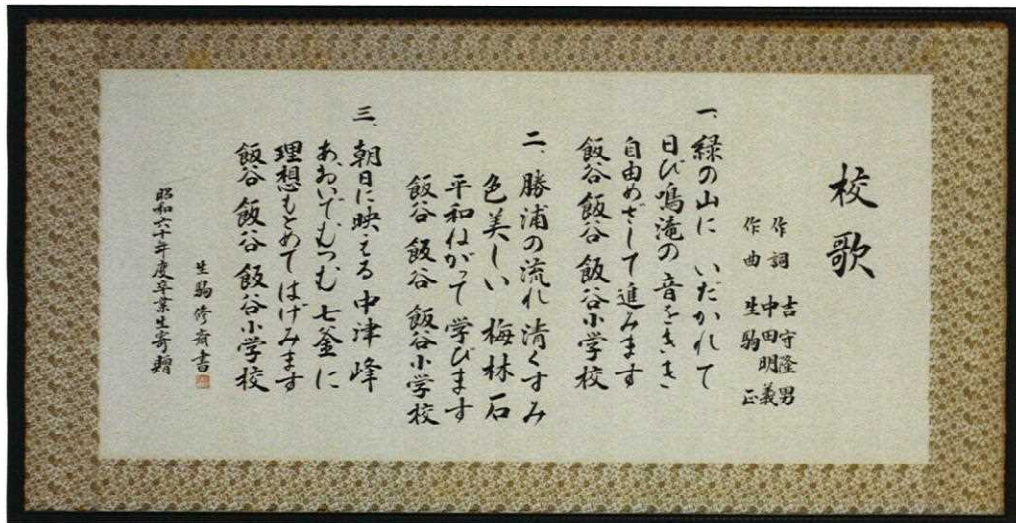 校歌
作詞 吉守隆男
中田明義
作曲 生駒 正
一、緑の山に いだかれて
日び鳴滝の 音をきき
自由めざして 進みます
飯谷 飯谷 飯谷小学校
二、勝浦の流れ 清くすみ
色美しい 梅林石
平和ねがって 学びます
飯谷 飯谷 飯谷小学校
三、朝日に映える 中津峰
あおいでむつむ 七釜に
理想もとめて はげみます
飯谷 飯谷 飯谷小学校
生駒修斎書
昭和六十年度卒業生寄贈